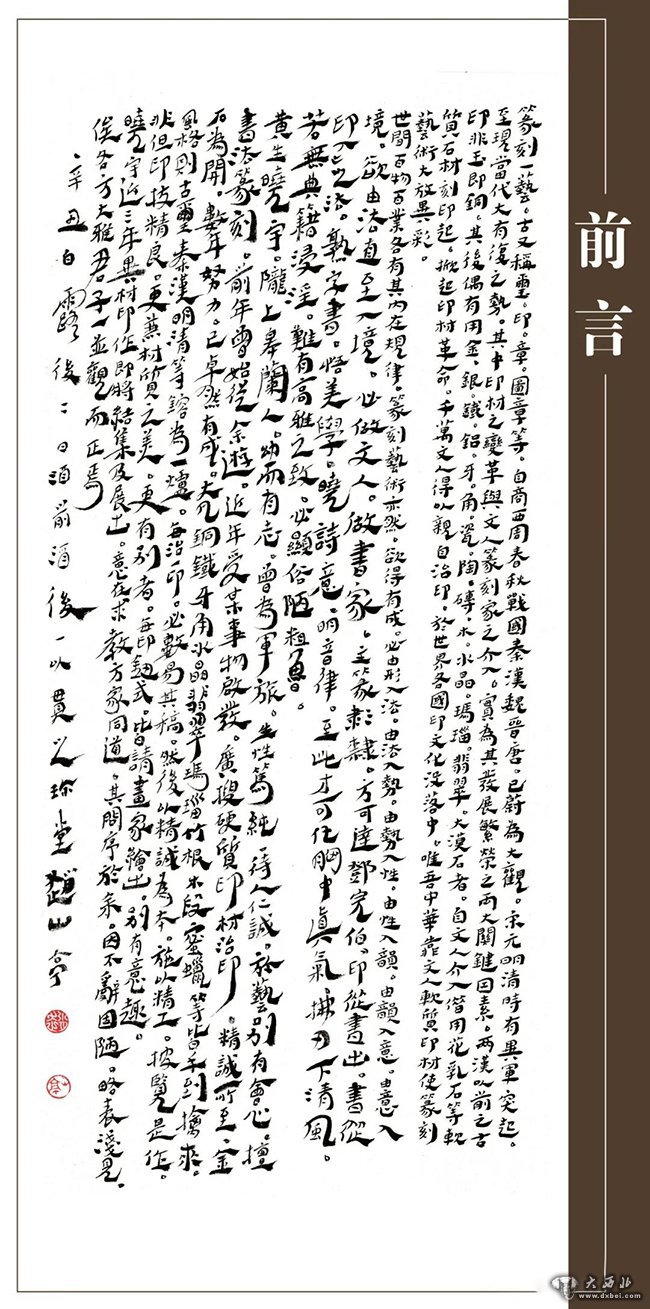 前言
篆刻一藝。古又稱璽。印。章。圖章等。自商西周春秋戰國秦漢魏晉唐。已蔚為大觀。宋元明清時有異軍突起。
至現當代大有復之勢。其中印材之變革與文人篆刻家之介入。實為其發展繁榮之兩大關鍵因素。兩漢以前之古
印非玉即銅。其後偶有用金。銀。鐵。鋁。牙。角。瓷。陶。磚。木。水晶。瑪瑙。翡翠。大漠石者。自文人介入偕用花乳石等軟
質石材刻印起。掀起印材革命。千萬文人得以親自治印。於世界各國印文化沒落中。唯吾中華靠文人軟質印材使篆刻
藝術大放異彩。
世間百物百業各有其內在規律。篆刻藝術亦然。欲得有成。必由形入法。由法入勢。由勢入性。由性入韻。由韻入意。由意入
境。欲由法直至入境。必做文人。做書家。主篆隸。方可達鄧完伯。印從書出。書從
印入之法。熟字書。悟美學。曉詩意。明音律。至此才可任胸中真氣拂丹下清風。
若無典籍浸淫。難有高雅之致。必顯俗陋粗魯。
黄生曉宇。隴上皋蘭人。幼而有志。曾為軍旅。生性篤純。待人仁誠。於藝別有會心。擅
書法篆刻。前年曾始從余遊。近年受某事物啟發。廣搜硬質印材治印。精誠所至。金
石為開。數年努力。已卓然有成。大凡銅鐵牙角水晶翡翠瑪瑙竹根木段蜜蠟等皆手到擒來。
風格則古璽秦漢明清等鎔為一爐。每治一印。必數易其稿。然後以精誠為本。施以精工。披覽是作。
非但印技精良。更兼材質之美。更有別者。每印鈕式。皆請畫家繪出。別有意趣。
曉宇近三年異材印作即將結集及展出。意在求教方家同道。其問序於余。因不辭固陋。略表淺見。
俟各方大雅君子一並觀而正焉
辛丑白露後二日酒前酒後一以貫之珎堂趙山亭
大西北
www.dxbei.com